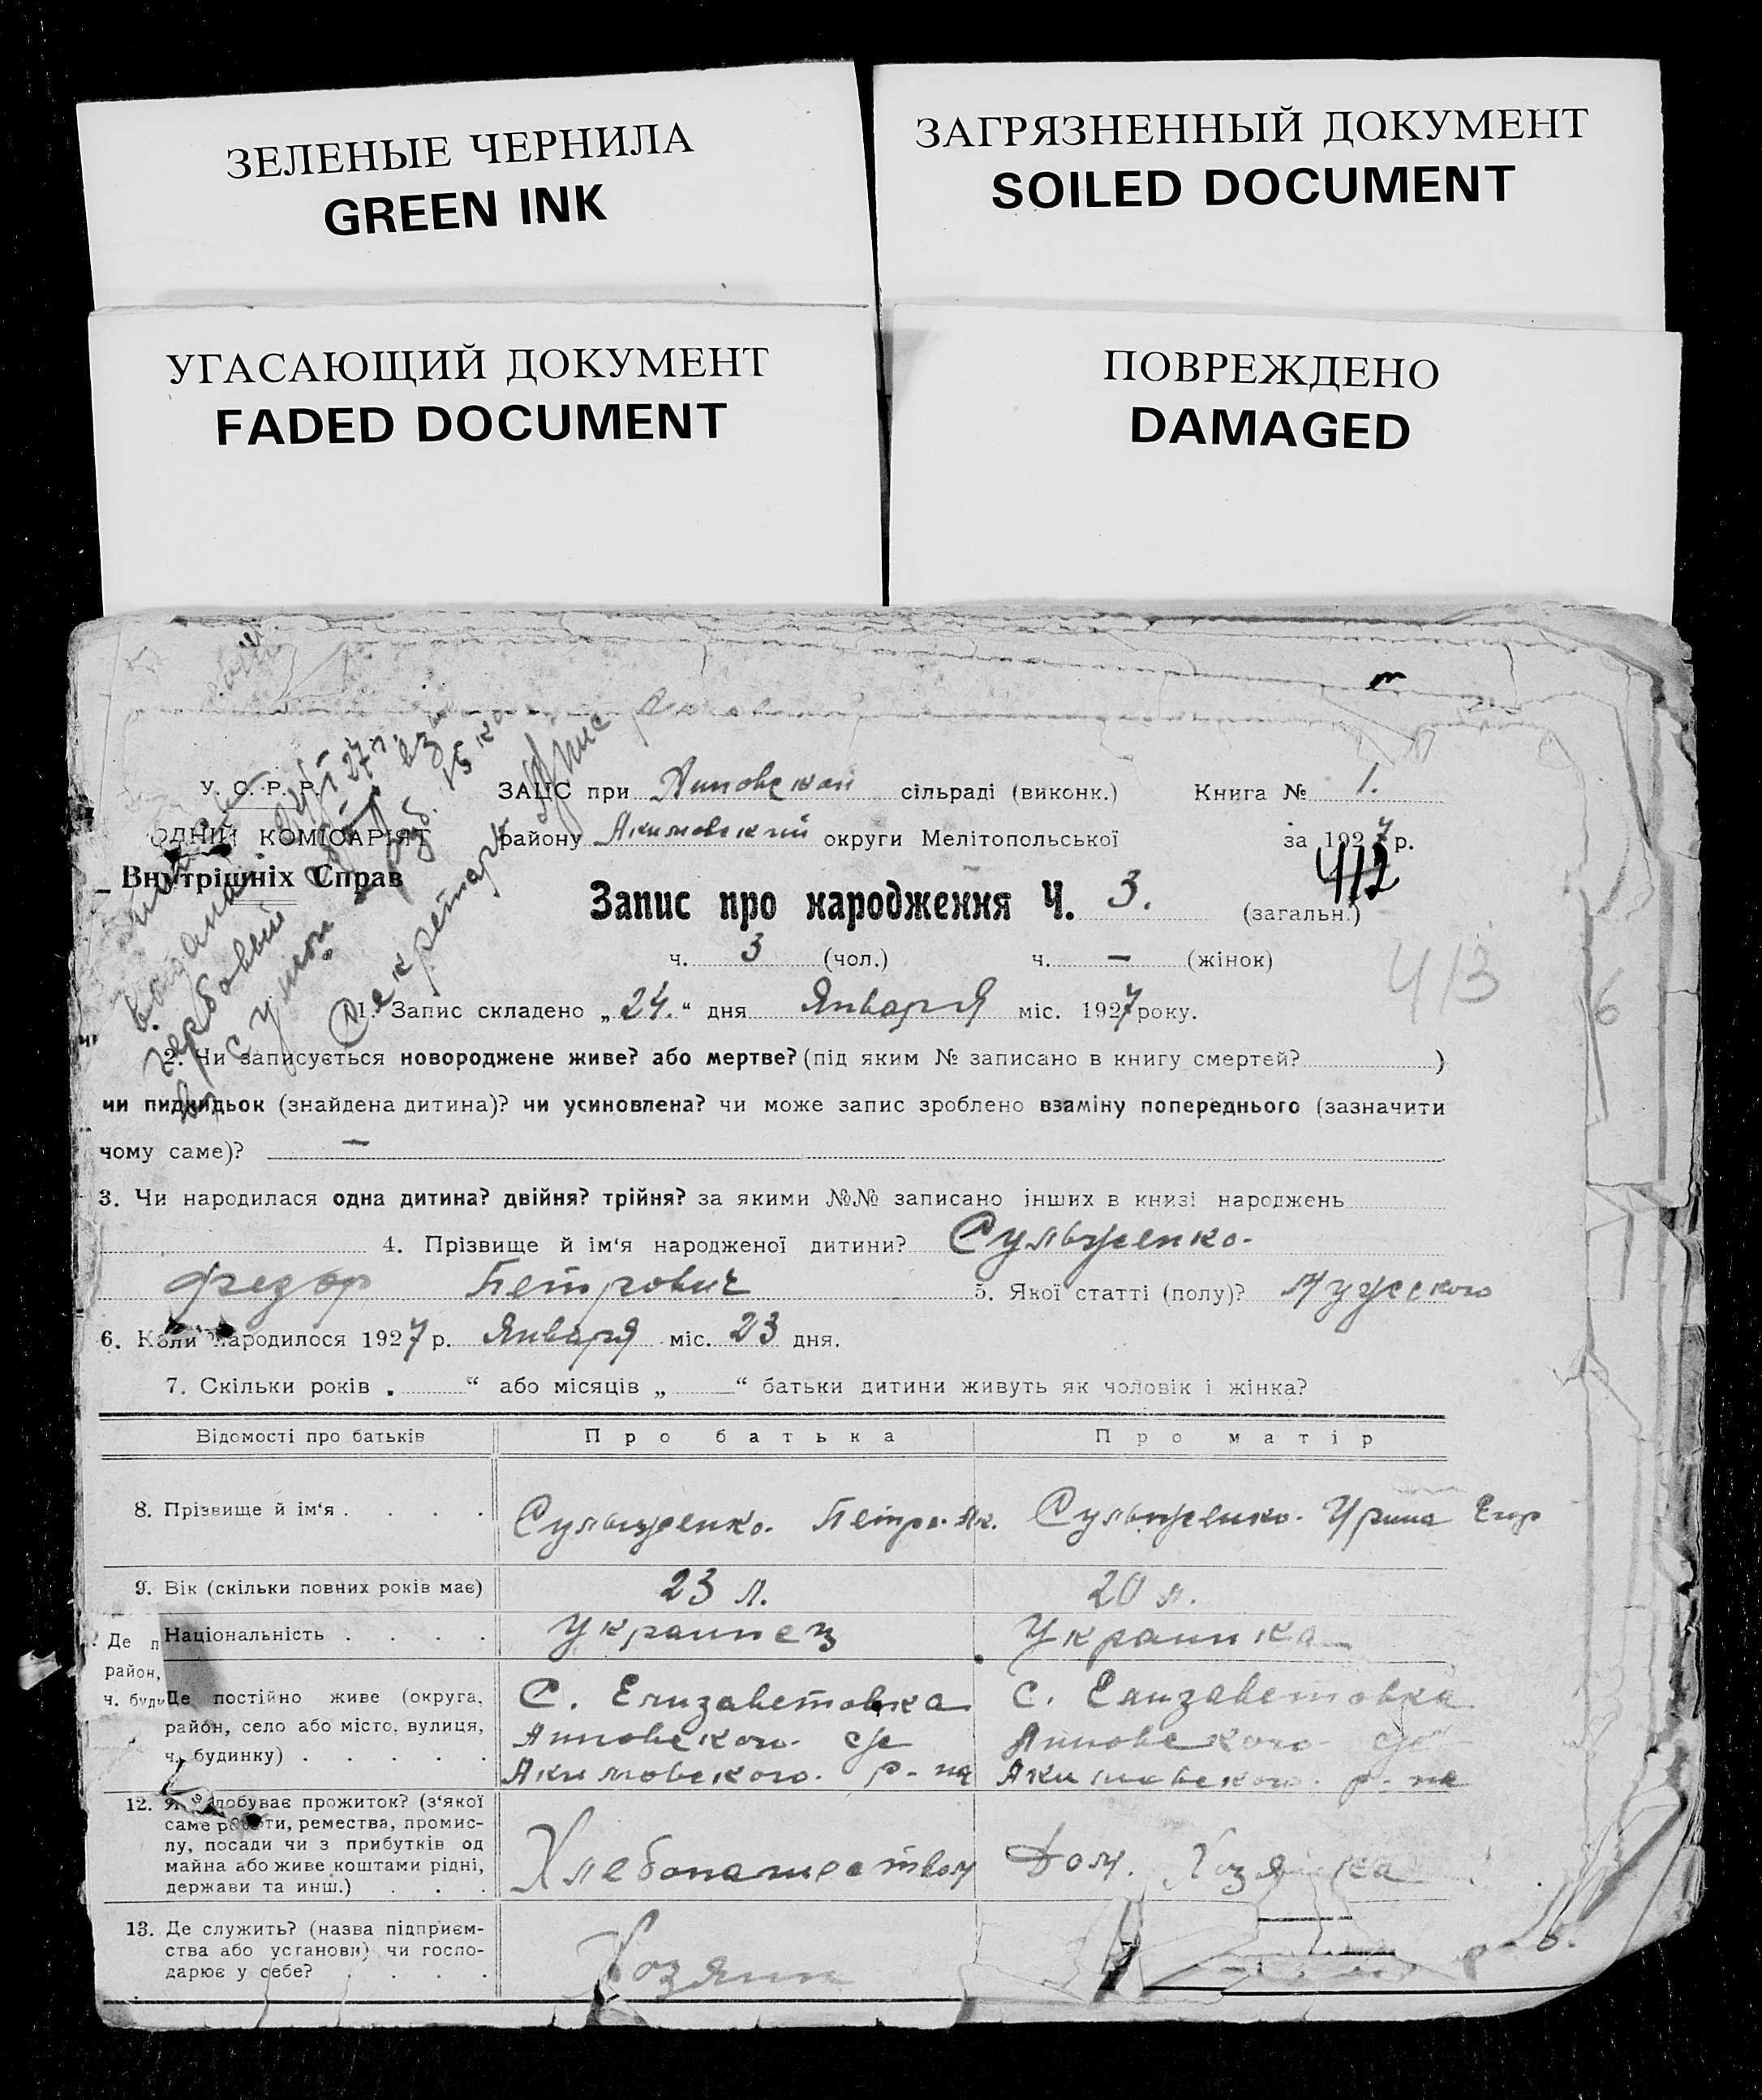 ЗЕЛЕНЫЕ ЧЕРНИЛА
GREEN INK
ЗАГРЯЗНЕННЫЙ ДОКУМЕНТ
SOILED DOCUMENT
УГАСАЮЩИЙ ДОКУМЕНТ
FADED DOCUMENT
ПОВРЕЖДЕНО
DAMAGED
У. С. Р. Р.
ОДНІЙ КОМІСАРІЯТ
Внутрішніх Справ
Секретарь
ЗАЦС при Анновской сільраді (виконк.) Книга № 1.
району Акимовский округи Мелітопольської за 1927 р.
412
Запис про народження Ч. 3. (загальн.)
ч. 3 (чол.) ч. — (жінок)
413
6
1. Запис складено „24.“ дня Января міс. 1927 року.
2. Чи записується новороджене живе? або мертве? (під яким № записано в книгу смертей? )
чи пидкидьок (знайдена дитина)? чи усиновлена? чи може запис зроблено взаміну попереднього (зазначити
чому саме)? —
3. Чи народилася одна дитина? двійня? трійня? за якими №№ записано інших в книзі народжень
4. Прізвище й ім‘я народженої дитини?
Федор Петрович 5. Якої статті (полу)? Мужского
6. Коли народилося 1927 р. Января міс. 23 дня.
7. Скільки років „ “ або місяців „ “ батьки дитини живуть як чоловік і жінка?
Відомості про батьків Про батька Про матір
8. Прізвище й ім‘я . . . . Петро Як. Ирина Егор
9. Вік (скільки повних років має) 23 л. 20 л.
Національність . . . . Украинец Украинка
Де п
район,
ч. буди
Де постійно живе (округа, С. Елизаветовка С. Елизаветовка
район, село або місто, вулиця, Анновского с/с Анновского с/с
ч. будинку) . . . . . Акимовского р-на Акимовского р-на
12. Як здобуває прожиток? (з‘якої
саме роботи, ремества, промис-
лу, посади чи з прибутків од
майна або живе коштами рідні, Хлебопашеством Дом. Хозяйка
держави та инш.) . . .
13. Де служить? (назва підприєм-
ства або установи) чи госпо-
дарює у себе? . . . . Хозяин